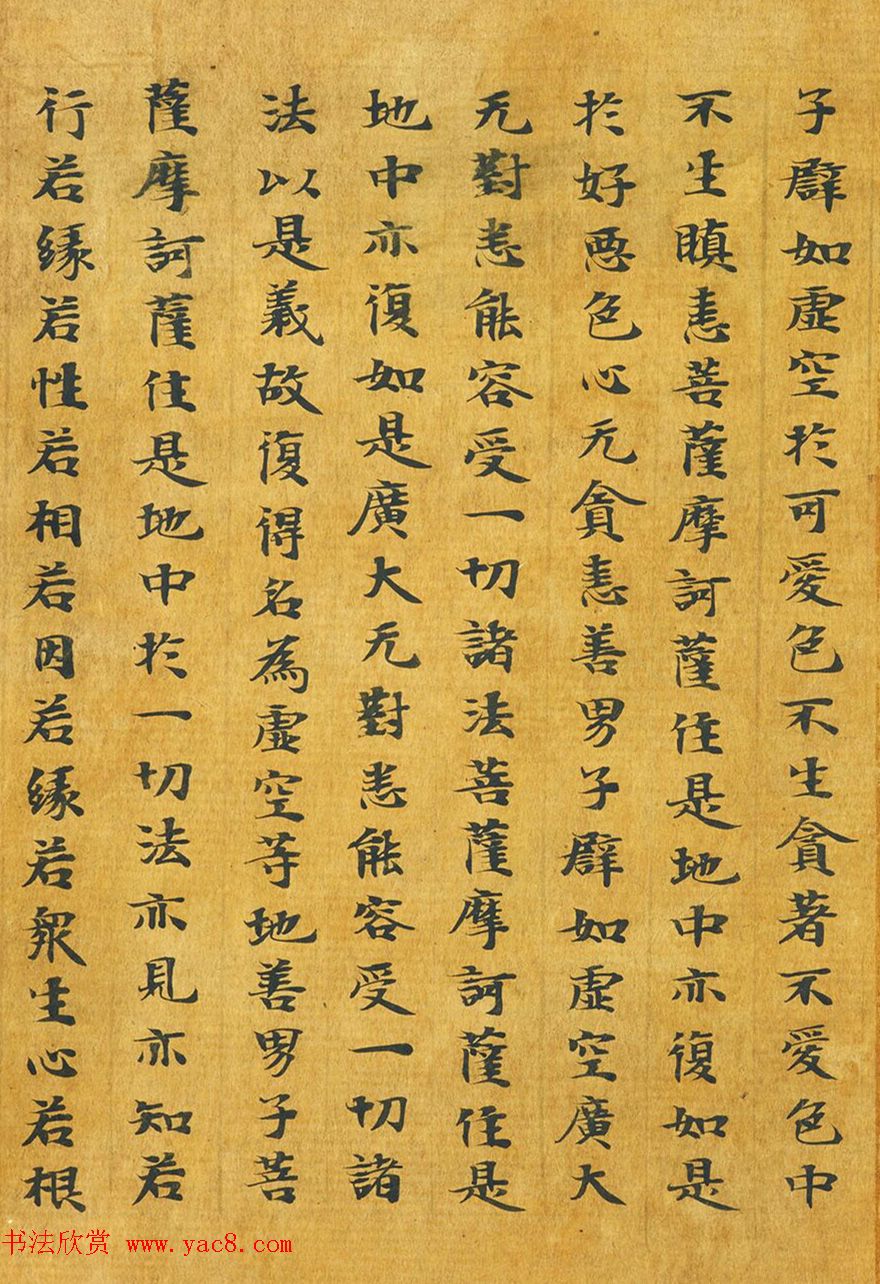 子譬如虛空於可愛色不生貪著不愛色中
不生瞋恚菩薩摩訶薩住是地中亦復如是
於好惡色心无貪恚善男子譬如虛空廣大
无對悉能容受一切諸法菩薩摩訶薩住是
地中亦復如是廣大无對悉能容受一切諸
法以是義故復得名為虛空等地善男子菩
薩摩訶薩住是地中於一切法亦見亦知若
行若緣若性若相若因若緣若眾生心若根
书法欣赏 www.yac8.com